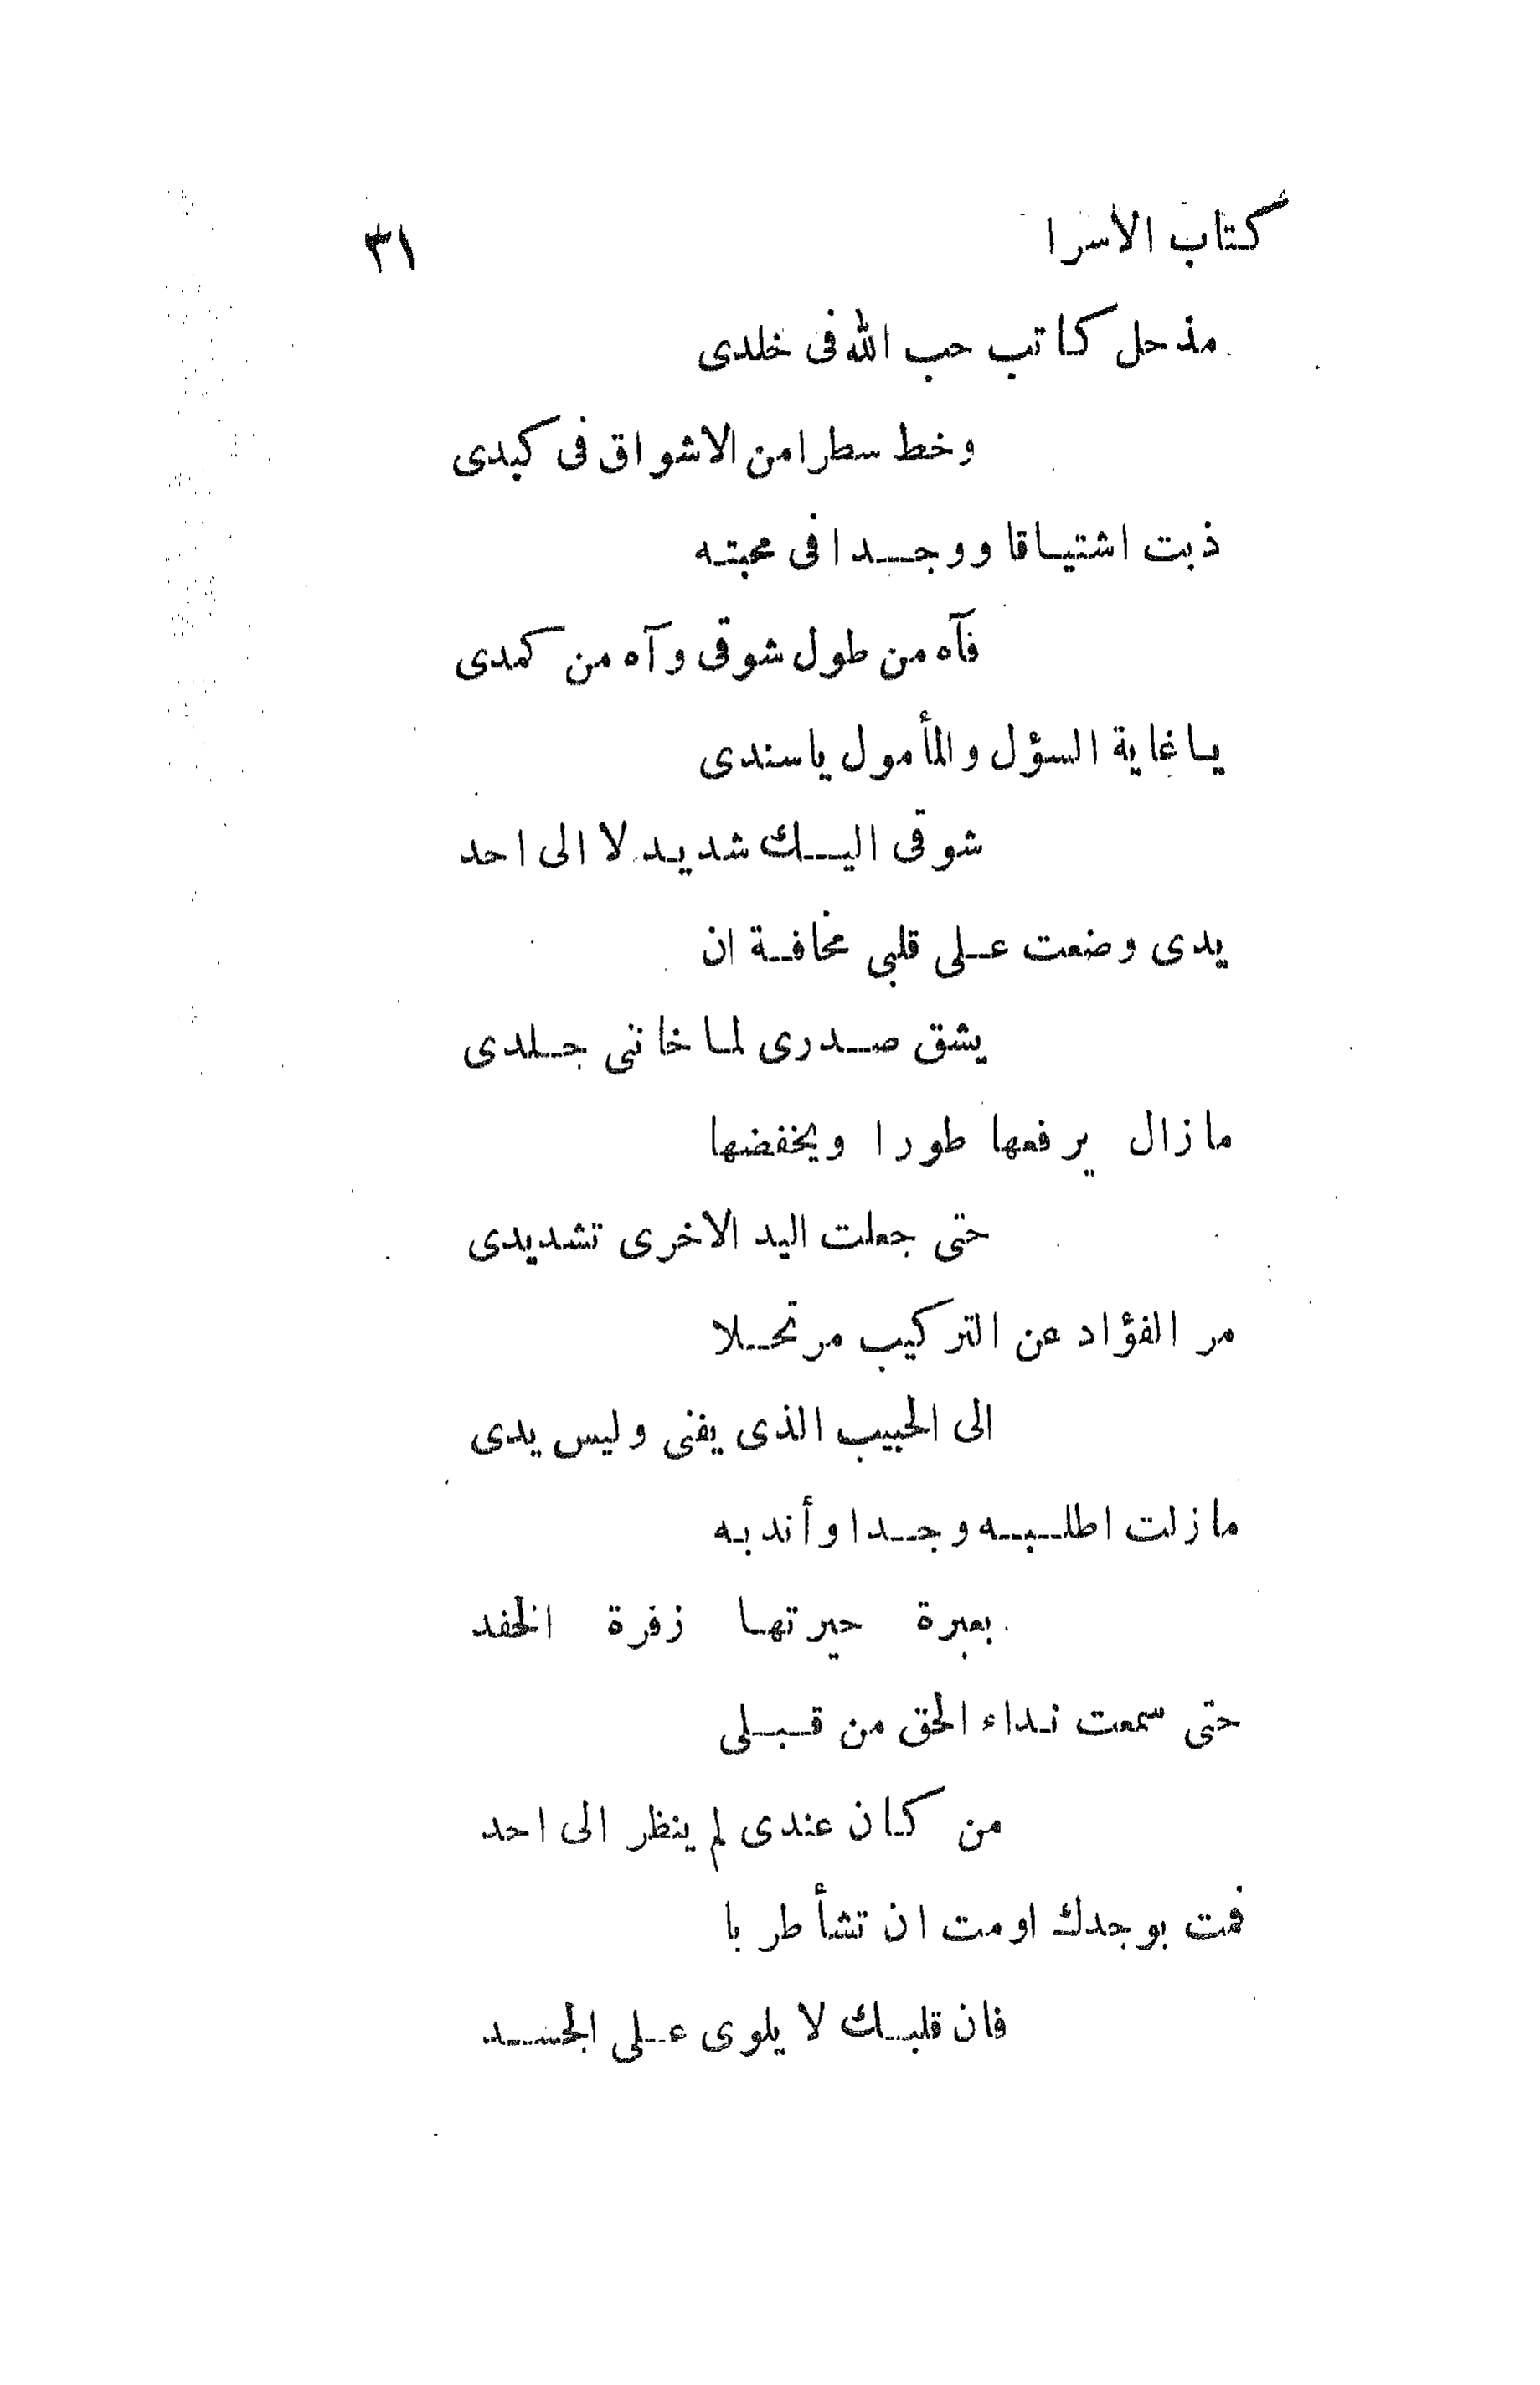 كتاب الاسرا
٣١
مذ حل كاتب حب الله فى خلدى
وخط سطرا من الاشواق فى كبدى
ذبت اشتياقا ووجدا فى محبته
فآه من طول شوقى وآه من كمدى
يا غاية السؤل والمأمول يا سندى
شوقى اليك شديد لا الى احد
يدى وضعت على قلبى مخافة ان
يشق صدرى لما خاننى جلدى
ما زال يرفعها طورا ويخفضها
حتى جعلت اليد الاخرى تشديدى
مر الفؤاد عن التركيب مرتحلا
الى الحبيب الذى يفنى وليس يدى
ما زلت اطلبه وجدا وأندبه
بعبرة حيرتها زفرة الخفد
حتى سمعت نداء الحق من قبلى
من كان عندى لم ينظر الى احد
فمت بوجدك او مت ان تشأ طربا
فان قلبك لا يلوى على الجسد